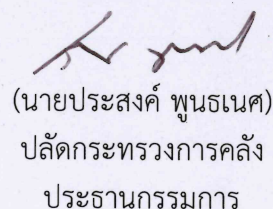 (นายประสงค์ พูนธเนศ)
ปลัดกระทรวงการคลัง
ประธานกรรมการ